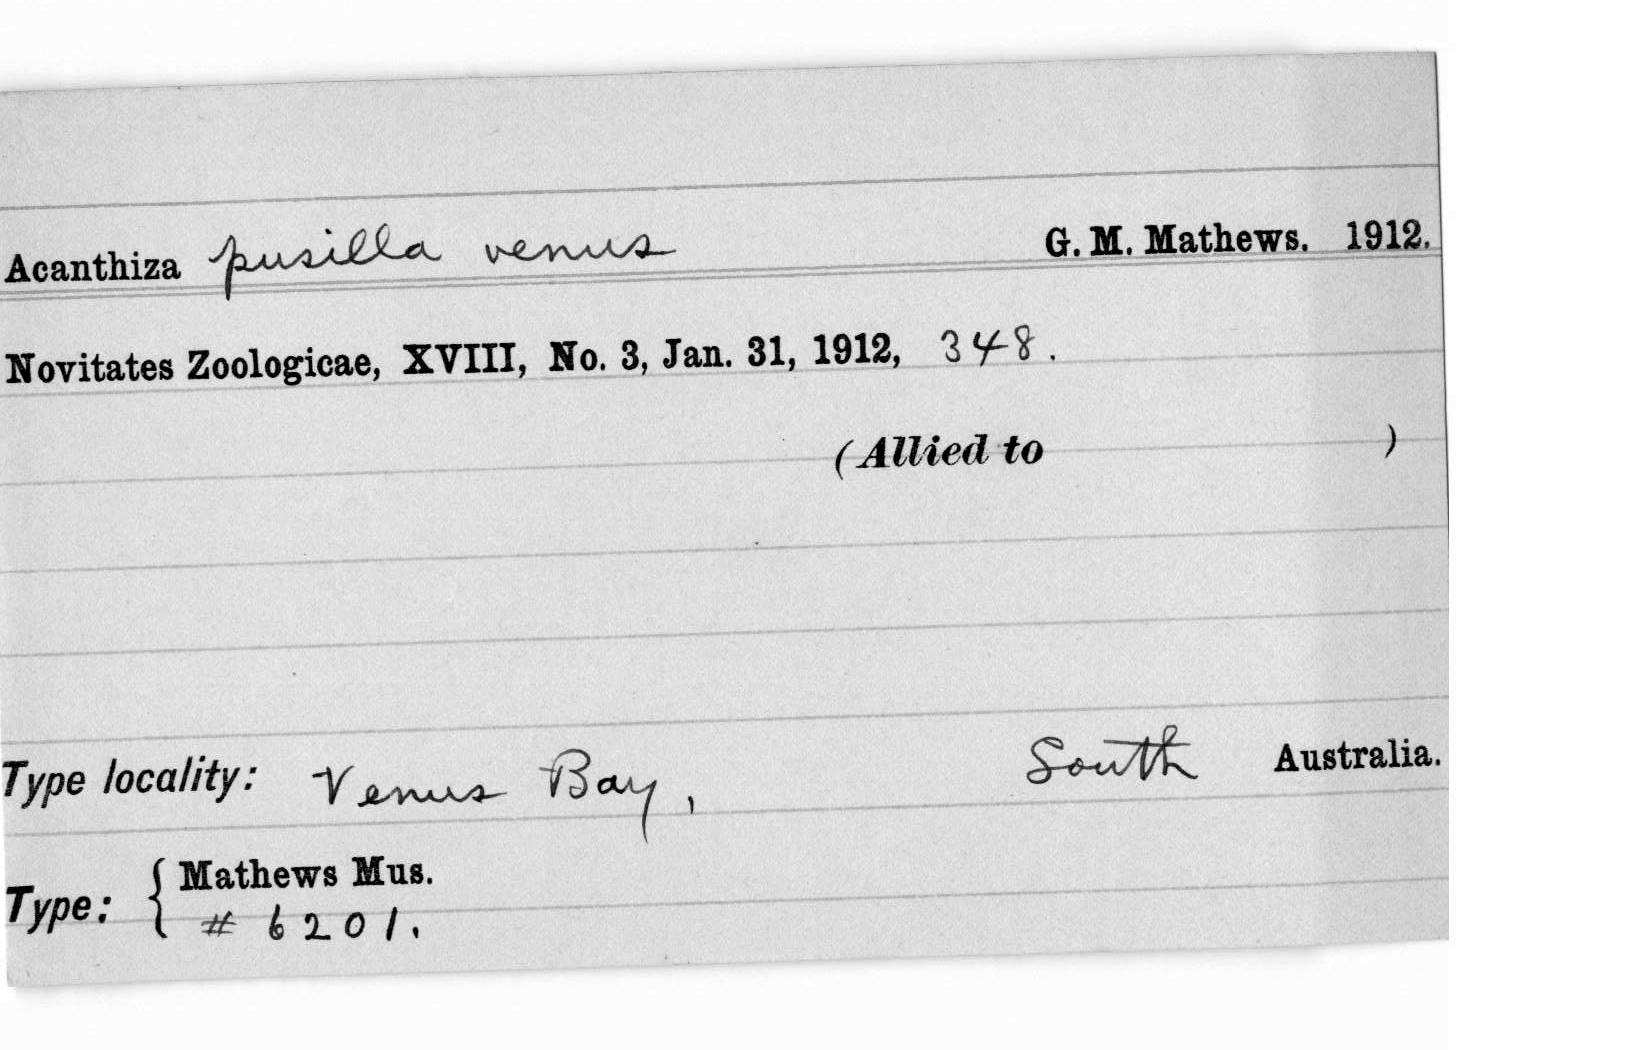 Acanthiza pusilla venus G. M. Mathews. 1912.
Novitates Zoologicae, XVIII, No. 3, Jan. 31, 1912, 348.
(Allied to )
Type locality: Venus Bay, South Australia.
Type: { Mathews Mus.
# 6201.